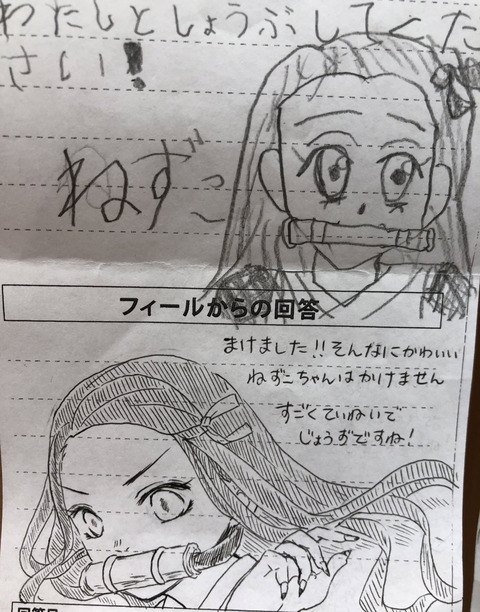 わたしとしょうぶしてくた
さい!
ねずこ
フィールからの回答
まけました!!そんなにかわいい
ねずこちゃんはかけません
すごくていねいで
じょうずですね!